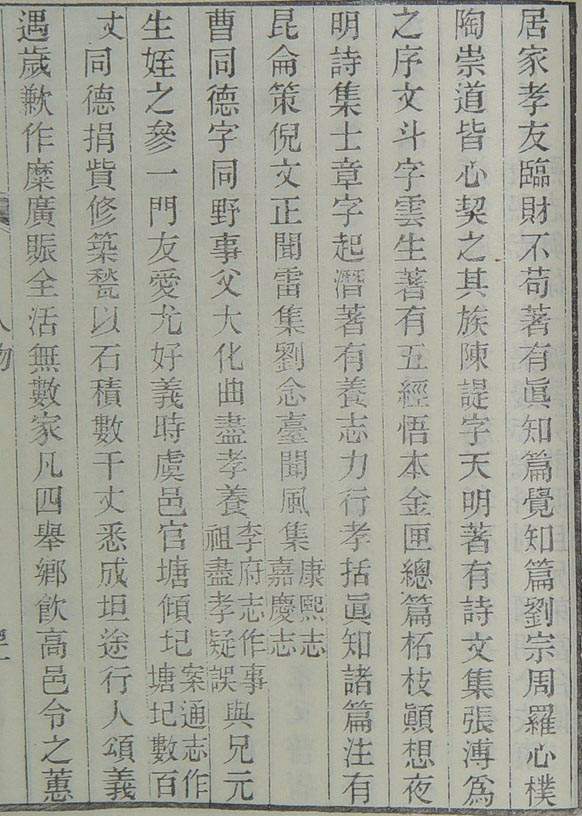 居家孝友臨財不苟著有眞知篇覺知篇劉宗周羅心樸
陶崇道皆心契之其族陳諟字天明著有詩文集張溥爲
之序文斗字雲生著有五經悟本金匣總篇柘枝顚想夜
明詩集士章字起潛著有養志力行孝括眞知諸篇注有
昆侖策倪文正聞雷集劉念臺聞風集康熙志嘉慶志
曹同德字同野事父大化曲盡孝養李府志作事祖盡孝疑誤與兄元
生姪之參一門友愛尤好義時虞邑官塘傾圮案通志作塘圮數百
丈同德捐貲修築甃以石積數千丈悉成坦途行人頌義
遇歲歉作糜廣賑全活無數家凡四舉鄉飲高邑令之蕙